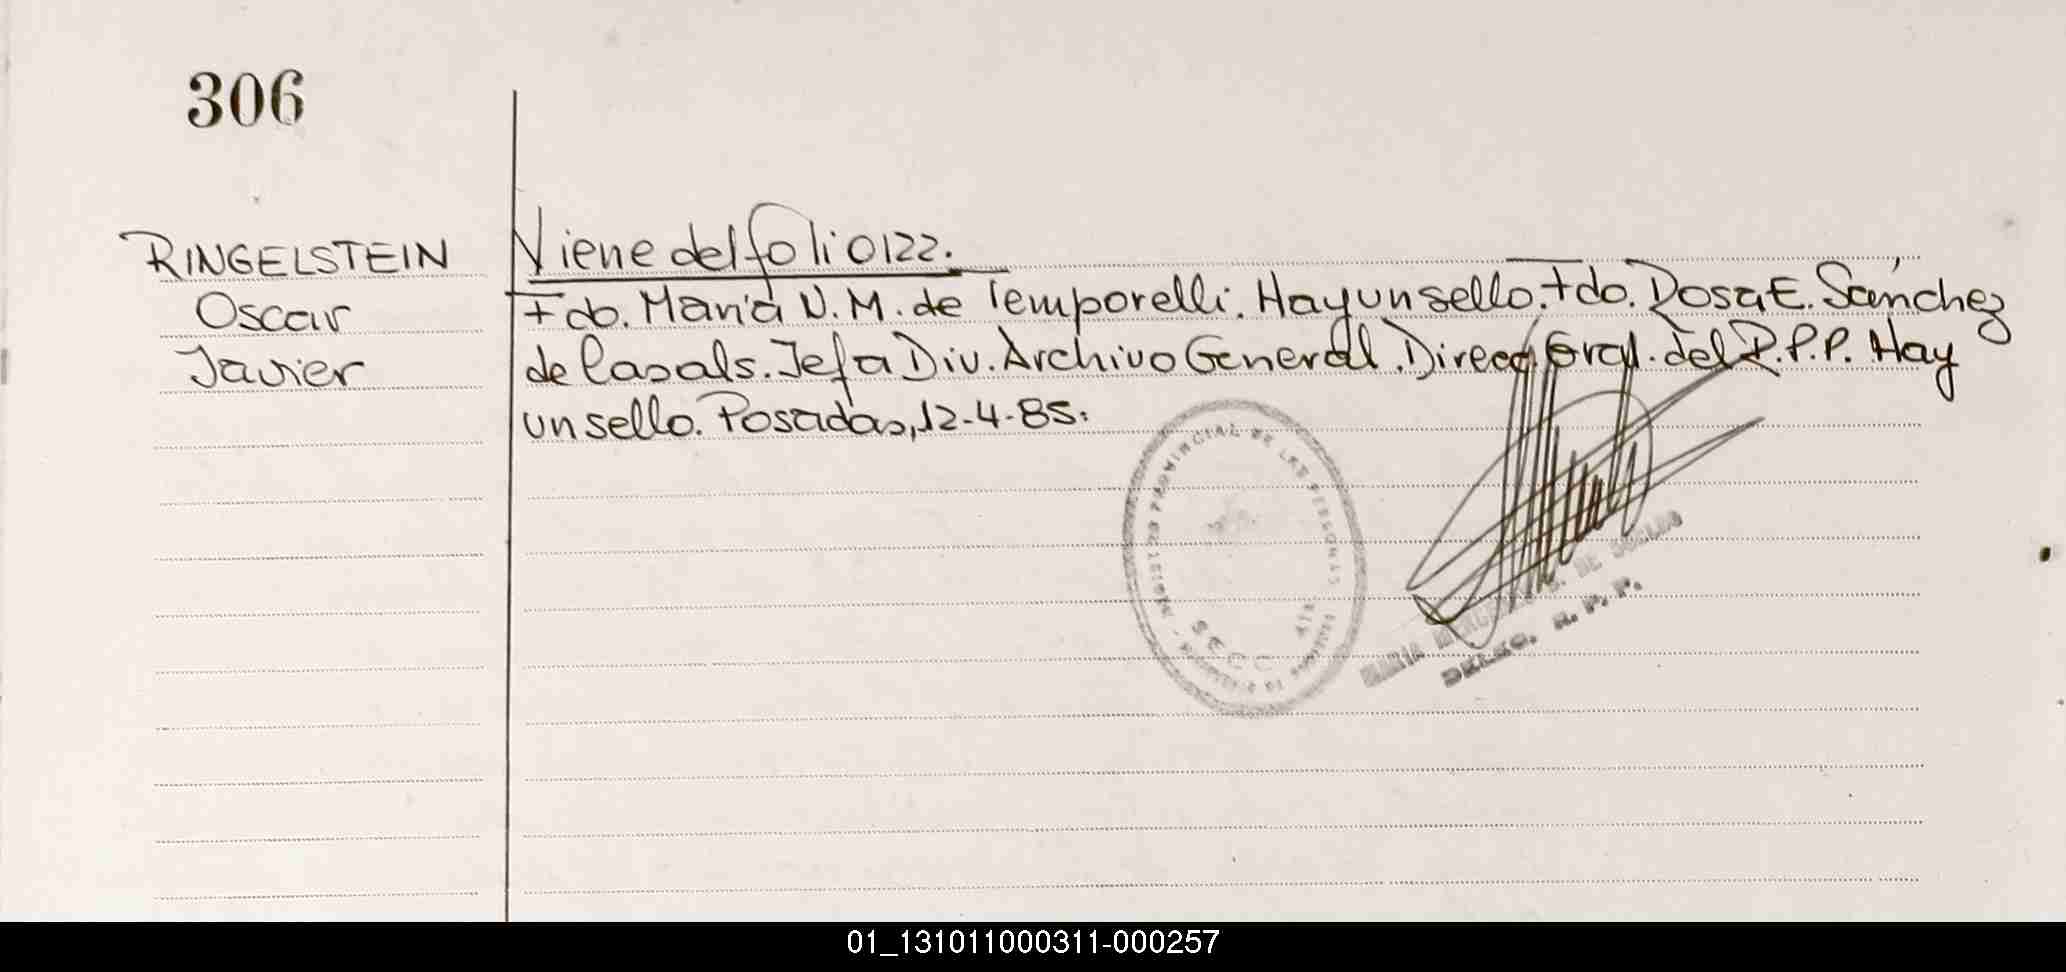 306
RINGELSTEIN
Oscar
Javier
Viene del folio 122.
Fdo. María N. M. de Temporelli. Hay un sello. Fdo. Rosa E. Sánchez
de Casals. Jefa Div. Archivo General. Direcc Gral. del R.P.P. Hay
un sello. Posadas, 12-4-85.
PROVINCIAL DE LAS PERSONAS
SECC
MARIA DE
DELEG. R. P. P.
01_131011000311-000257